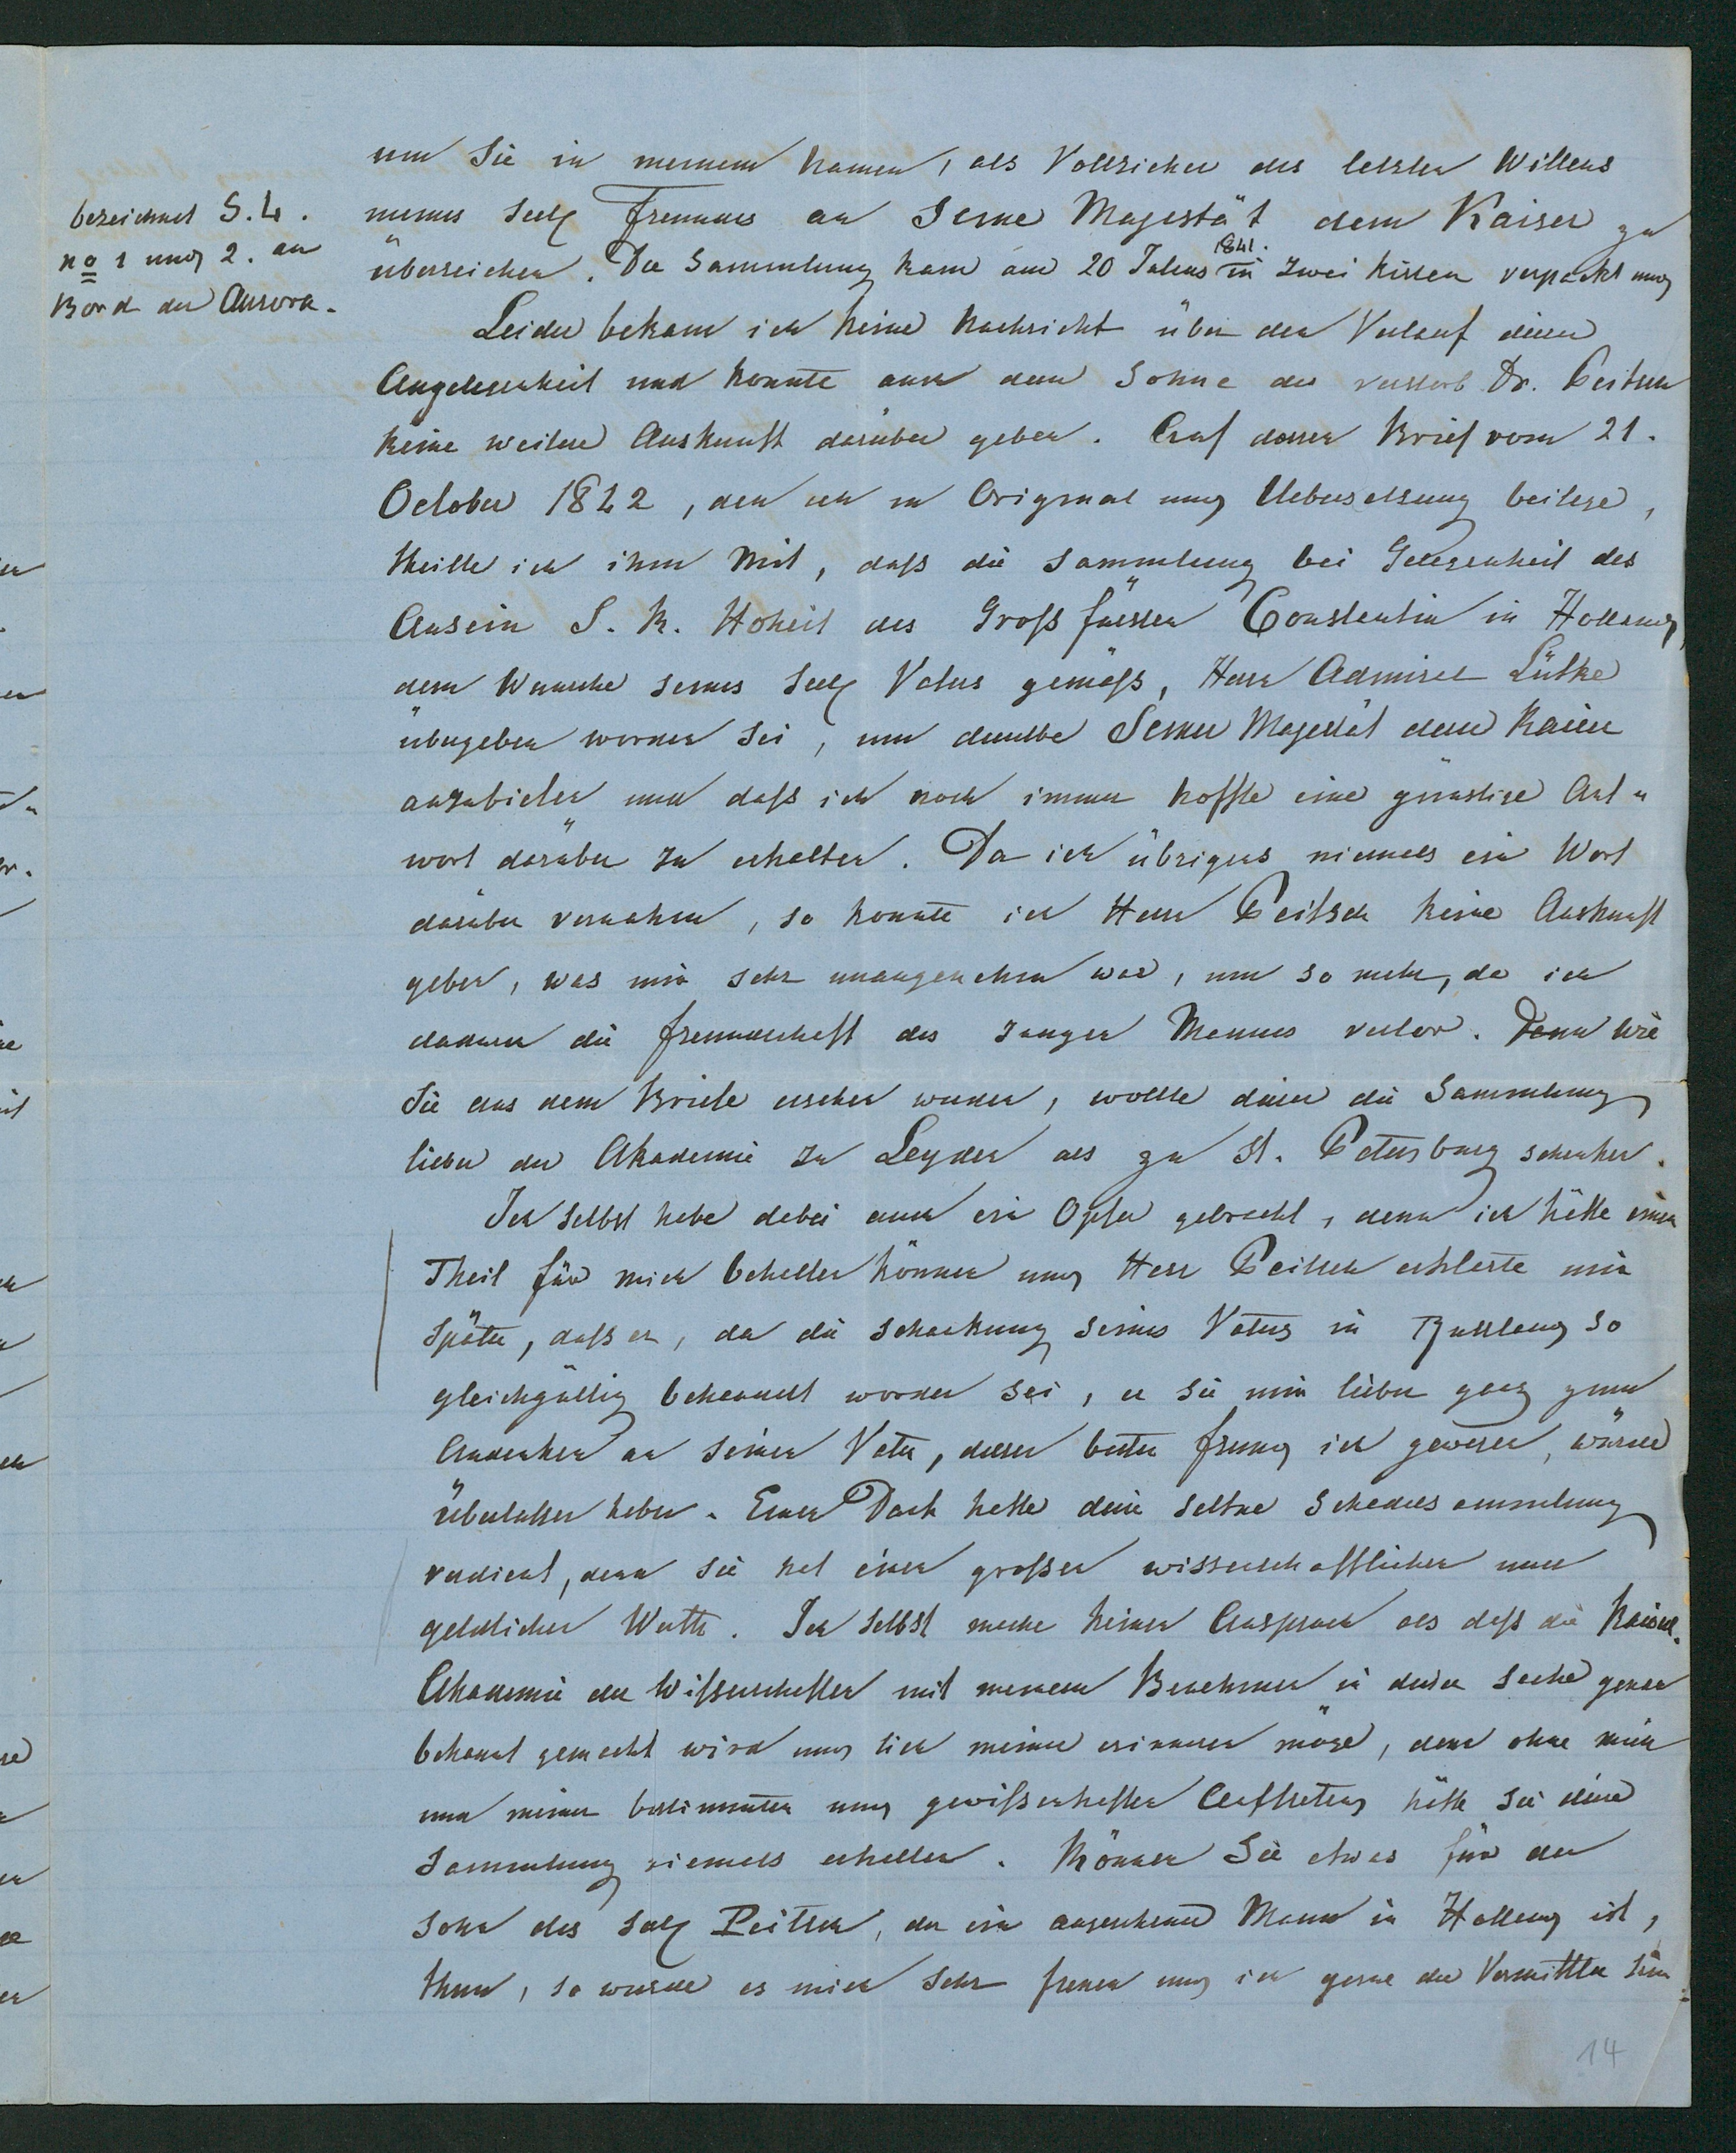 um Sie in meinem Namen, als Vollzieher des letzten Willens
bezeichnet S. L.
No 1 und 2. an
Bord der Aurora.
meines seelg Freundes an Seine Majestät dem Kaiser zu
überreichen. Die Sammlung kam am 20 Julius 1841. in zwei Kisten verpackt und
Leider bekam ich keine Nachricht über den Verlauf dieser
Angelegenheit und konnte auch dem Sohne des verstorb Dr. Peitsch
keine weitere Auskunft darüber geben. Auf dessen Brief vom 21.
October 1842, den ich in Original und Uebersetzung beilege,
theilte ich ihm mit, daß die Sammlung bei Gelegenheit des
Ansein S. K. Hoheit des Großfürsten Constantin in Holland,
dem Wunsche seines seelg Vaters gemäß, Herr Admiral Lütke
übergeben worden sei, um dieselbe Seiner Majestät dem Kaiser
anzubieten und daß ich noch immer hoffte eine günstige Ant-
wort darüber zu erhalten. Da ich übrigens niemals ein Wort
darüber vernahm, so konnte ich Herr Peitsch keine Auskunft
geben, was mir sehr unangenehm war, um so mehr, da ich
dadurch die Freundschaft des jungen Mannes verlor. Denn wie
Sie aus dem Briefe ersehen werden, wollte dieser die Sammlung
lieber der Akademie zu Leyden als zu St. Petersburg schenken.
Ich selbst habe dabei auch ein Opfer gebracht, denn ich hätte einen
Theil für mich behalten können und Herr Peitsch erklärte mir
später, daß er, da die Schenkung seines Vaters in Russland so
gleichgültig behandelt worden sei, er sie mir lieber ganz zum
Andenken an seinen Vater, dessen bester Freund ich gewesen, würde
überlassen haben. Einen Dank hätte diese seltne Schedelsammlung
verdient, denn sie hat einen großen wissenschaftlichen und
geldlichen Werth. Ich selbst mache keinen Anspruch als daß die Kaiserl.
Akademie der Wißenschaften mit meinem Benehmen in dieser Sache genau
bekannt gemacht wird und sich meiner erinnern möge, denn ohne mich
und meinen bestimmten und gewißenhaften Auftreten hätte sie diese
Sammlung niemals erhalten. Können Sie etwas für den
Sohn des seelg Peitsch, der ein angesehener Mann in Holland ist,
thun, so würde es mich sehr freuen und ich gerne der Vermittler sein
14